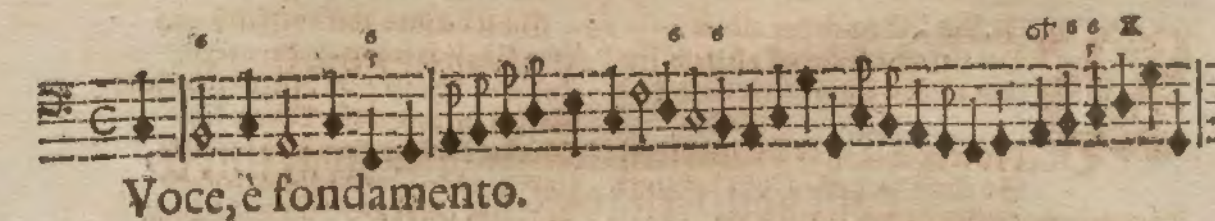 6 6 6 6 6 6 X
Voce, è fondamento.